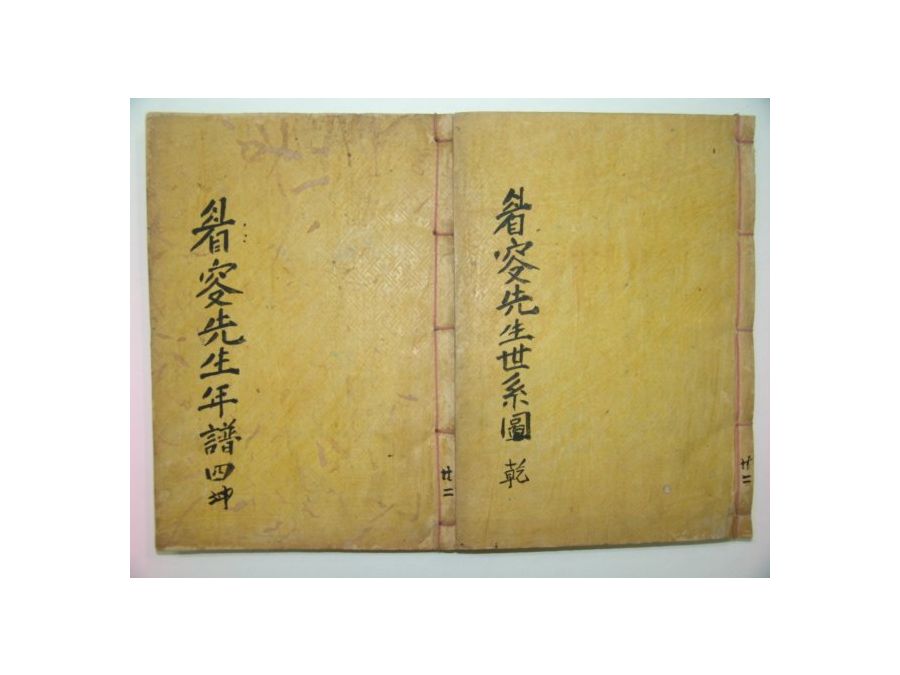 睂叜先生世系圖 乾
廿二
睂叜先生年譜 四坤
廿二